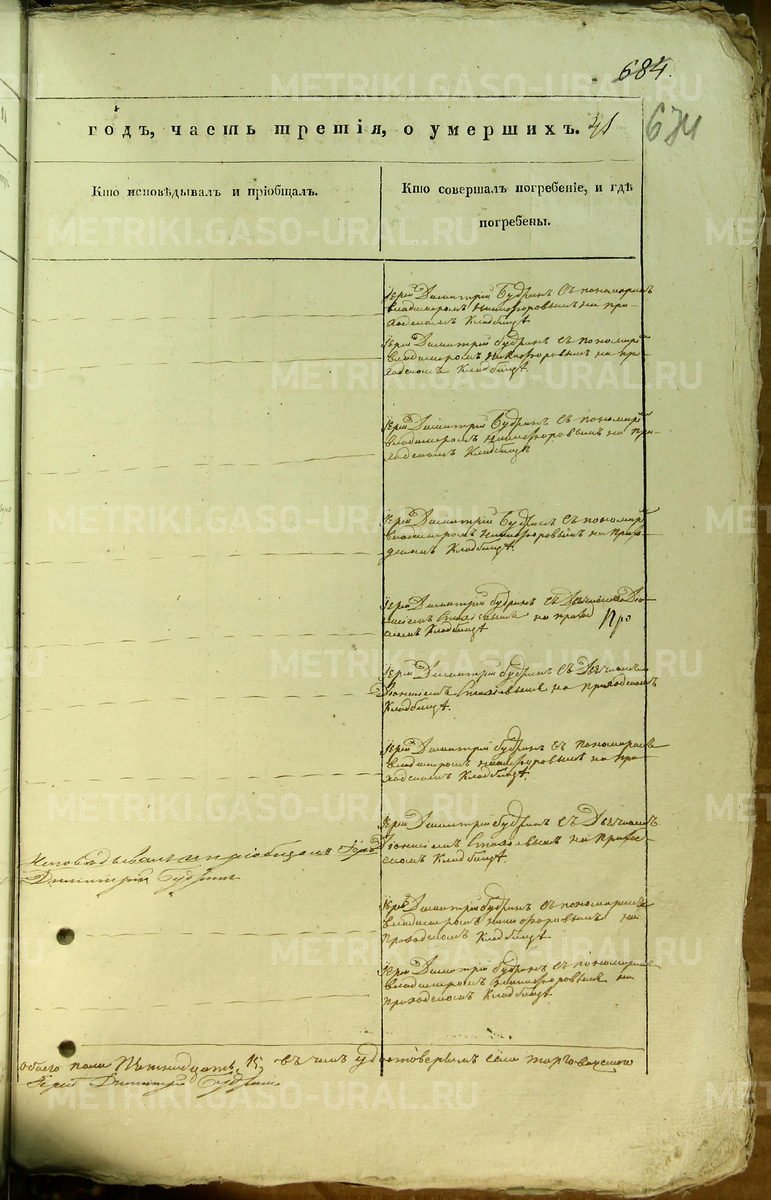 684.
годъ, часть третія, о умершихъ. 41
674
Кто исповѣдывалъ и пріобщалъ.
Кто совершалъ погребеніе, и гдѣ
погребены.
Іерей Димитрій Будринъ съ пономаремъ
Владимеромъ Никифоровымъ на при-
ходскомъ Кладбищѣ
Іерей Димитрій Будринъ съ пономаремъ
Владимеромъ Никифоровымъ на при-
ходскомъ Кладбищѣ
Іерей Димитрій Будринъ съ пономаремъ
Владимеромъ Никифоровымъ на при-
ходскомъ Кладбищѣ
Іерей Димитрій Будринъ съ пономаремъ
Владимеромъ Никифоровымъ на прихо-
дскомъ Кладбищѣ.
Іерей Димитрій Будринъ съ Дьячкомъ
на приход
скомъ Кладбищѣ
Про
Іерей Димитрій Будринъ съ Дьячкомъ
на приходскомъ
Кладбищѣ.
Іерей Димитрій Будринъ съ пономаремъ
Владимеромъ Никифоровымъ на при-
ходскомъ Кладбищѣ
Іерей Димитрій Будринъ съ Дьячкомъ
на приход-
скомъ Кладбищѣ
Исповѣдывалъ и пріобщалъ Іерей
Димитрій Будринъ
Іерей Димитрій Будринъ съ пономаремъ
Владимеромъ Никифоровымъ на
Приходскомъ Кладбищѣ
Іерей Димитрій Будринъ съ пономаремъ
Владимеромъ Никифоровымъ на
Приходскомъ Кладбищѣ
обоего пола Пятнадцать, 15, въ чемъ удостовѣряемъ села
Іерей Димитрій Будринъ
METRIKI.GASO-URAL.RU